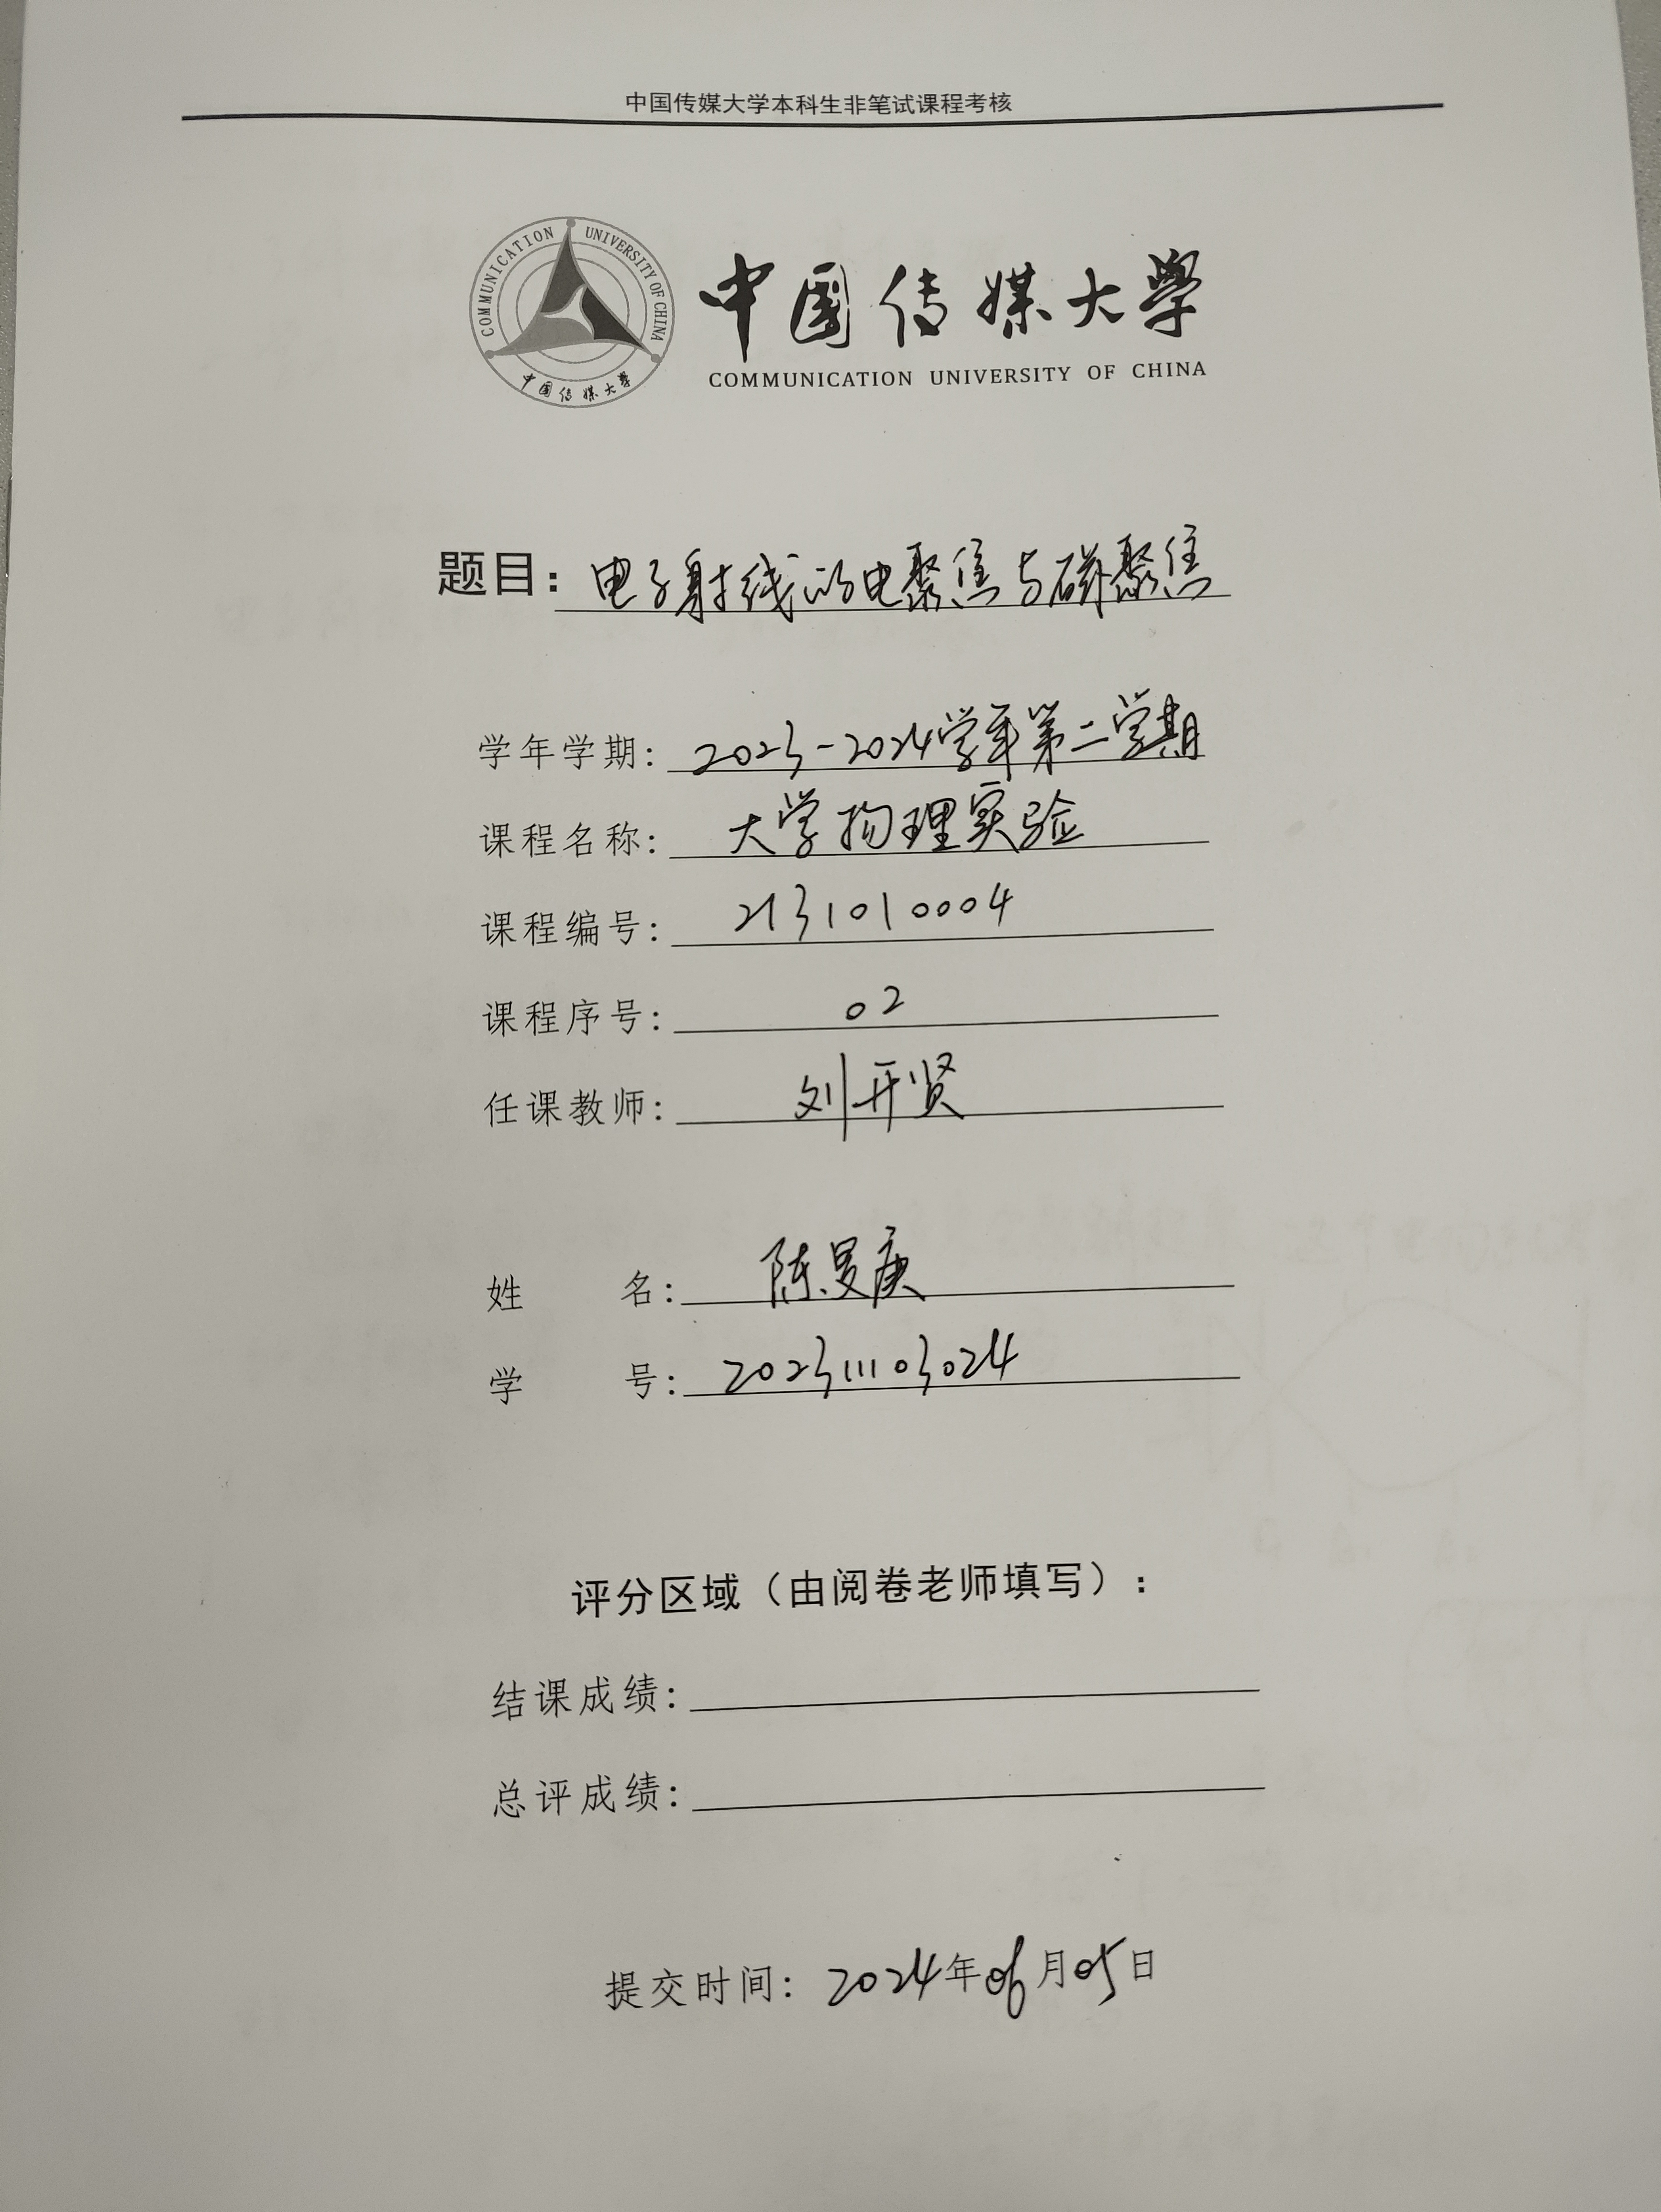 中国传媒大学本科生非笔试课程考核
COMMUNICATION UNIVERSITY OF CHINA
中国传媒大学
中国传媒大学
COMMUNICATION UNIVERSITY OF CHINA
题目：电子射线的电聚焦与磁聚焦
学年学期：2023-2024学年第二学期
课程名称：大学物理实验
课程编号：2131010004
课程序号：02
任课教师：刘开贤
姓 名：陈旻庚
学 号：202311103024
评分区域（由阅卷老师填写）：
结课成绩：
总评成绩：
提交时间：2024年06月05日